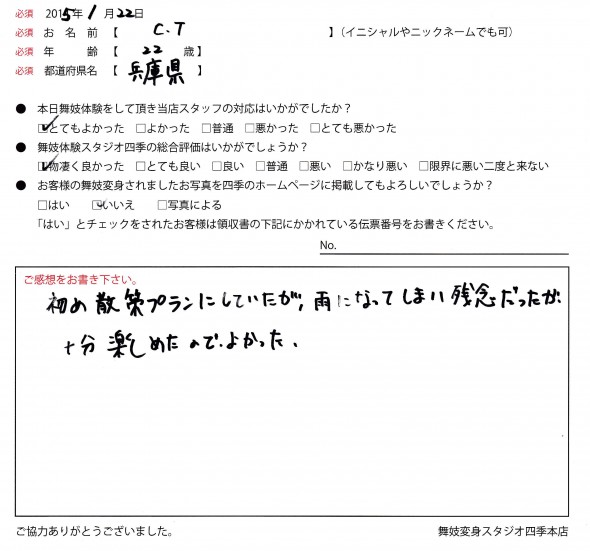 必須 2015年1月22日
必須 お名前【 C.T 】(イニシャルやニックネームでも可)
必須 年 齢【 22 歳】
必須 都道府県名【 兵庫県 】
● 本日舞妓体験をして頂き当店スタッフの対応はいかがでしたか?
☑とてもよかった □よかった □普通 □悪かった □とても悪かった
● 舞妓体験スタジオ四季の総合評価はいかがでしょうか?
☑物凄く良かった □とても良い □良い □普通 □悪い □かなり悪い □限界に悪い二度と来ない
● お客様の舞妓変身されましたお写真を四季のホームページに掲載してもよろしいでしょうか?
□はい ☑いいえ □写真による
「はい」とチェックをされたお客様は領収書の下記にかかれている伝票番号をお書きください。
No.
ご感想をお書き下さい。
初め散策プランにしていたが、雨になってしまい残念だったが、
十分楽しめたので、よかった、
ご協力ありがとうございました。 舞妓変身スタジオ四季本店